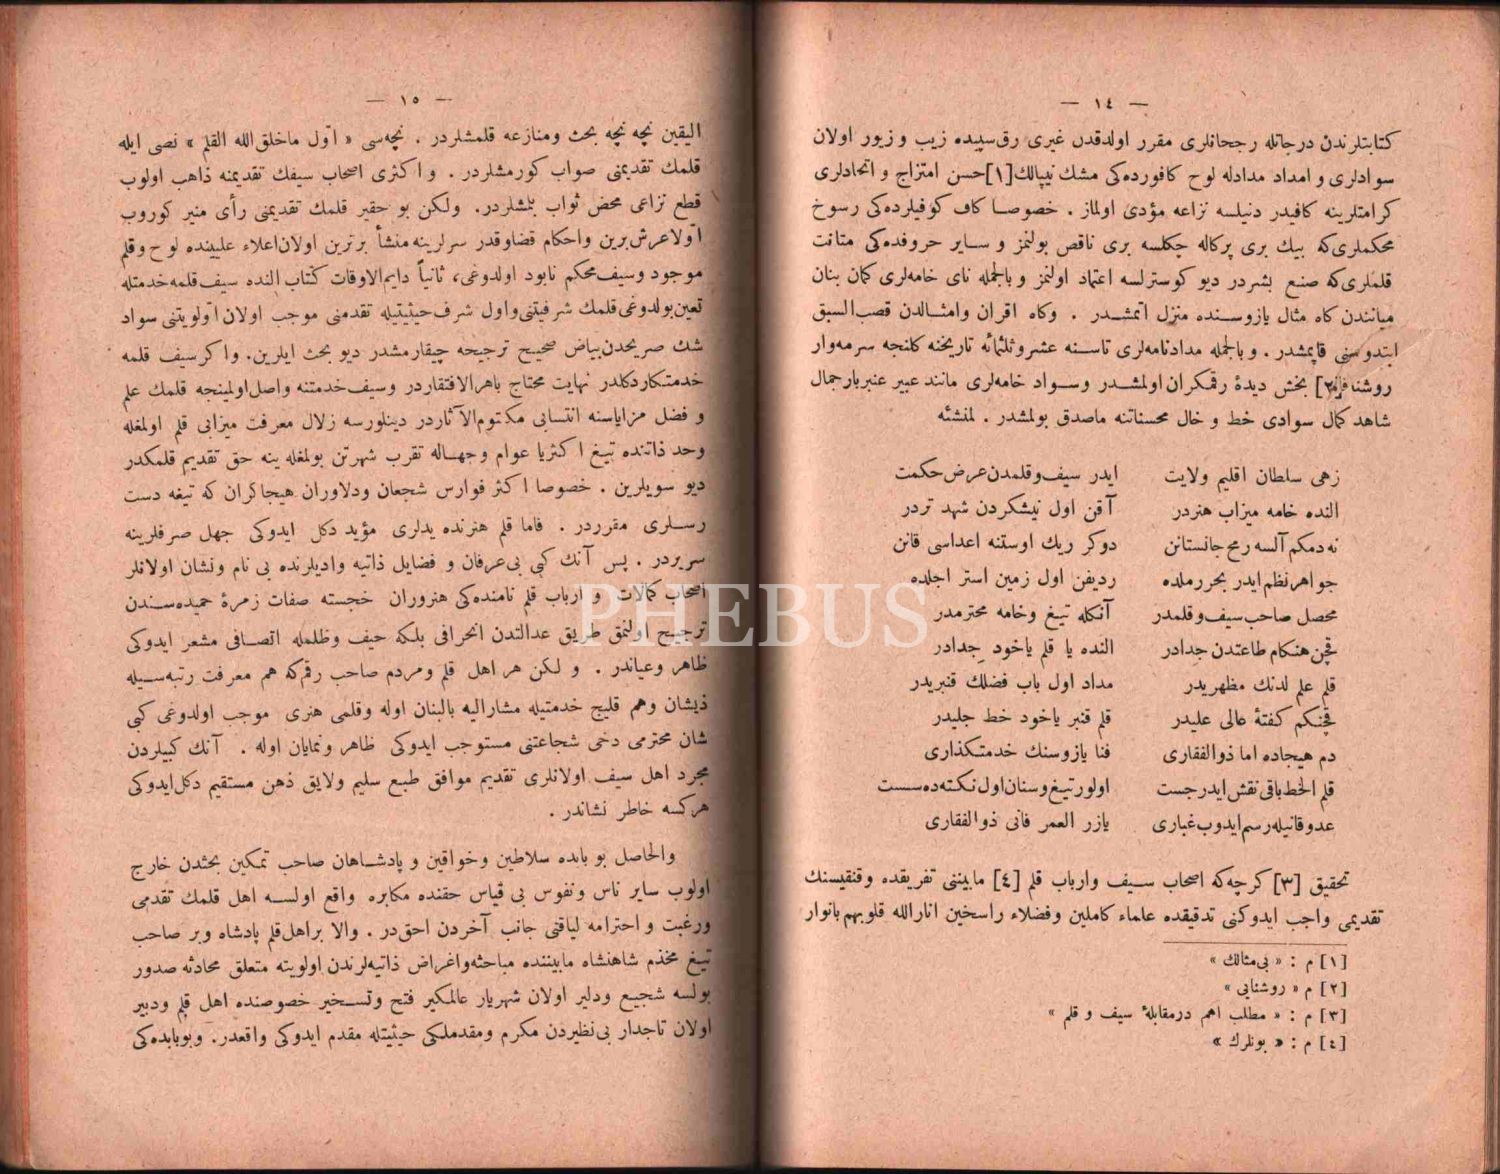 — ١٤ —
كتابتلرندن درجاتله رجحانلری مقرر اولدقدن غیری رق سپیده زیب و زیور اولان
سوادلری و امداد مدادله لوح كافورده‌كی مشك نیپالك [١] حسن امتزاج و اتحادلری
كرامتلرینه كافیدر دنیلسه نزاعه مؤدی اولماز . خصوصا كاف كوفیلرده‌كی رسوخ
محكملری‌كه بیك بری پركاله چكلسه بری ناقص بولنمز و سایر حروفده‌كی متانت
قلملری‌كه صنع بشردر دیو كوسترلسه اعتماد اولنمز و بالجمله نای خامه‌لری كمان بنان
میانندن كاه مثال یازوسنده منزل آتمشدر . وكاه اقران وامثالدن قصب‌السبق
ایتدوسنی قاپمشدر . وبالجمله مدادنامه‌لری تاسنه عشروثلثمائه تاریخنه كلنجه سرمه‌وار
روشنا [٢] بخش دیدهٔ رقمكران اولمشدر وسواد خامه‌لری مانند عبیر عنبربار جمال
شاهد كمال سوادی خط و خال محسناتنه ماصدق بولمشدر . لمنشئه
زهی سلطان اقلیم ولایت ایدر سیف‌وقلمدن عرض حكمت
النده خامه میزاب هنردر آقن اول نیشكردن شهد تردر
نه‌دمكم آلسه رمح جانستانن دوكر ریك اوستنه اعداسی قانن
جواهر نظم ایدر بحر رملده ردیفن اول زمین استر اجلده
محصل صاحب سیف‌وقلمدر آنكله تیغ وخامه محترمدر
قچن هنكام طاعتدن جدادر النده یا قلم یاخود جدادر
قلم علم لدنك مظهریدر مداد اول باب فضلك قنبریدر
قچنكم كفتهٔ عالی علیدر قلم قنبر یاخود خط جلیدر
دم هیجاده اما ذوالفقاری فنا یازوسنك خدمتكذاری
قلم الخط باقی نقش ایدر جست اولور تیغ وسنان اول نكته‌ده سست
عدوقانیله رسم ایدوب غباری یازر العمر فانی ذوالفقاری
تحقیق [٣] كرچه‌كه اصحاب سیف وارباب قلم [٤] مابیننی تفریقده وقنقیسنك
تقدیمی واجب ایدوكنی تدقیقده علماء كاملین وفضلاء راسخین انارالله قلوبهم بانوار
[١] م : « بی‌مثالك »
[٢] م « روشنایی »
[٣] م : « مطلب اهم درمقابلهٔ سیف و قلم »
[٤] م : « بونلرك »
— ١٥ —
الیقین نچه نچه بحث ومنازعه قلمشلردر . نچه‌سی « اول ماخلق‌الله القلم » نصی ایله
قلمك تقدیمنی صواب كورمشلردر . واكثری اصحاب سیفك تقدیمنه ذاهب اولوب
قطع نزاعی محض ثواب بلمشلردر. ولكن بو حقیر قلمك تقدیمنی رأی منیر كوروب
اولاعرش برین واحكام قضاوقدر سرلرینه منشأ برترین اولان‌اعلاء علییننده لوح وقلم
موجود وسیف محكم نابود اولدوغی، ثانیاً دایم‌الاوقات كتاب النده سیف قلمه خدمتله
تعین بولدوغی قلمك شرفیتنی واول شرف حیثیتیله تقدمنی موجب اولان اولویتنی سواد
شك صریحدن بیاض صحیح ترجیحه چیقارمشدر دیو بحث ایلرین. واكر سیف قلمه
خدمتكاردكلدر نهایت محتاج باهرالافتقاردر وسیف خدمتنه واصل‌اولمینجه قلمك علم
و فضل مزایاسنه انتسابی مكتوم‌الآثاردر دینلورسه زلال معرفت میزابی قلم اولمغله
وحد ذاتنده تیغ اكثریا عوام وجهاله تقرب شهرتن بولمغله ینه حق تقدیم قلمكدر
دیو سویلرین . خصوصا اكثر فوارس شجعان ودلاوران هیجاكران كه تیغه دست
رسلری مقرردر . فاما قلم هنرنده یدلری مؤید دكل ایدوكی جهل صرفلرینه
سربردر . پس آنك كبی بی‌عرفان و فضایل ذاتیه وادیلرنده بی نام ونشان اولانلر
اصحاب كمالات وارباب قلم نامنده‌كی هنروران خجسته صفات زمرهٔ حمیده‌سندن
ترجیح اولنمق طریق عدالتدن انحرافی بلكه حیف وظلمله اتصافی مشعر ایدوكی
ظاهر وعیاندر . و لكن هر اهل قلم ومردم صاحب رقم‌كه هم معرفت رتبه‌سیله
ذیشان وهم قلیج خدمتیله مشارالیه بالبنان اوله وقلمی هنری موجب اولدوغی كبی
شان محترمی دخی شجاعتنی مستوجب ایدوكی ظاهر ونمایان اوله . آنك كبیلردن
مجرد اهل سیف اولانلری تقدیم موافق طبع سلیم ولایق ذهن مستقیم دكل‌ایدوكی
هركسه خاطر نشاندر .
والحاصل بو بابده سلاطین وخواقین و پادشاهان صاحب تمكین بحثدن خارج
اولوب سایر ناس ونفوس بی قیاس حقنده مكابره واقع اولسه اهل قلمك تقدمی
ورغبت و احترامه لیاقتی جانب آخردن احق‌در . والا بر اهل‌قلم پادشاه وبر صاحب
تیغ مخذم شاهنشاه مابیننده مباحثه‌واغراض ذاتیه‌لرندن اولویته متعلق محادثه صدور
بولسه شجیع ودلیر اولان شهریار عالمكیر فتح وتسخیر خصوصنده اهل قلم ودبیر
اولان تاجدار بی‌نظیردن مكرم ومقدملكی حیثیتله مقدم ایدوكی واقعدر. وبوبابده‌كی
PHEBUS